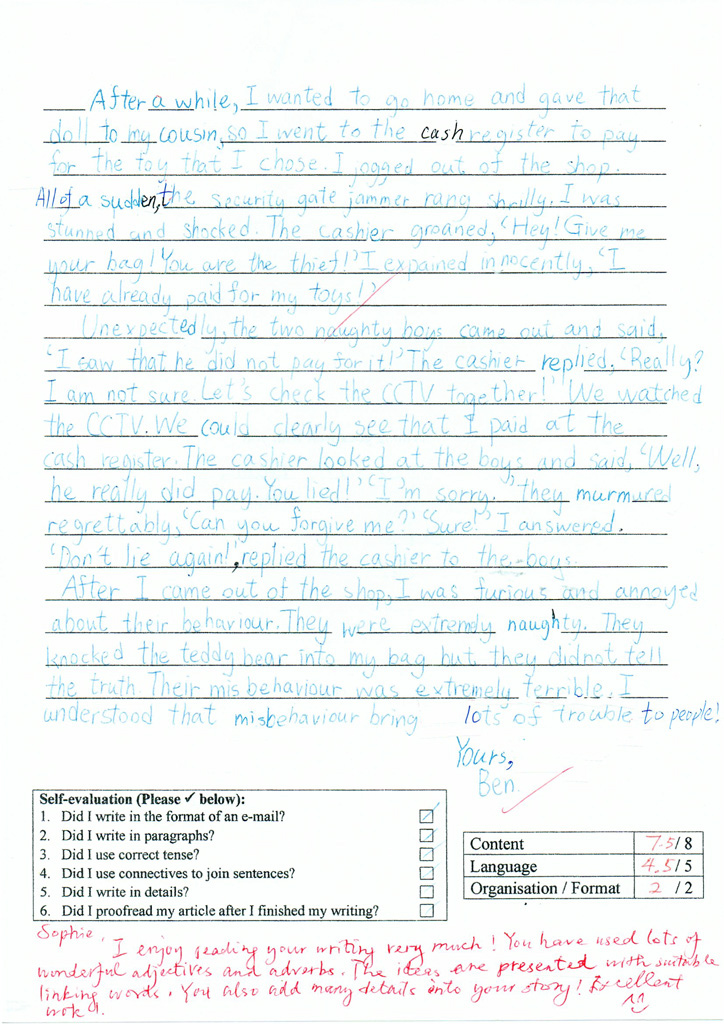 After a while, I wanted to go home and gave that
doll to my cousin, so I went to the cash register to pay
for the toy that I chose. I jogged out of the shop.
All of a sudden, the security gate jammer rang shrilly. I was
stunned and shocked. The cashier groaned, 'Hey! Give me
your bag! You are the thief!' I expained innocently, 'I
have already paid for my toys!'
Unexpectedly, the two naughty boys came out and said,
'I saw that he did not pay for it!' The cashier replied, 'Really?
I am not sure. Let's check the CCTV together!' We watched
the CCTV. We could clearly see that I paid at the
cash register. The cashier looked at the boys and said, 'Well,
he really did pay. You lied!' 'I'm sorry.' They murmured
regrettably, 'Can you forgive me?' 'Sure!' I answered.
'Don't lie again!', replied the cashier to the boys.
After I came out of the shop, I was furious and annoyed
about their behaviour. They were extremely naughty. They
knocked the teddy bear into my bag but they did not tell
the truth. Their misbehaviour was extremely terrible. I
understood that misbehaviour bring lots of trouble to people!
Yours,
Ben
Self-evaluation (Please ✓ below):
1. Did I write in the format of an e-mail? ✓
2. Did I write in paragraphs? ✓
3. Did I use correct tense? ✓
4. Did I use connectives to join sentences?
5. Did I write in details?
6. Did I proofread my article after I finished my writing?
Content 7.5 / 8
Language 4.5 / 5
Organisation / Format 2 / 2
Sophie,
I enjoy reading your writing very much! You have used lots of
wonderful adjectives and adverbs. The ideas are presented with suitable
linking words. You also add many details into your story! Excellent
work!